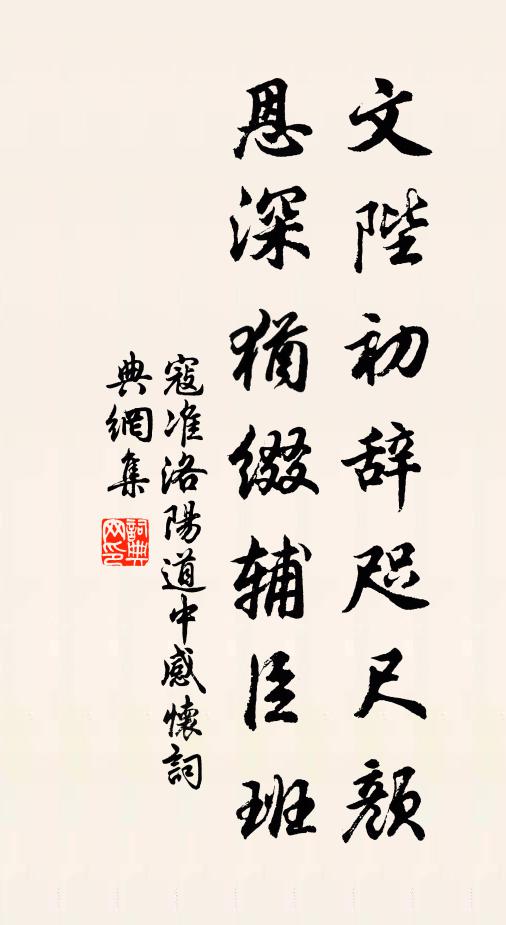 文陛初辞咫尺颜
恩深犹缀辅臣班
寇准洛陽道中感懷詞
典網集
詞典網印